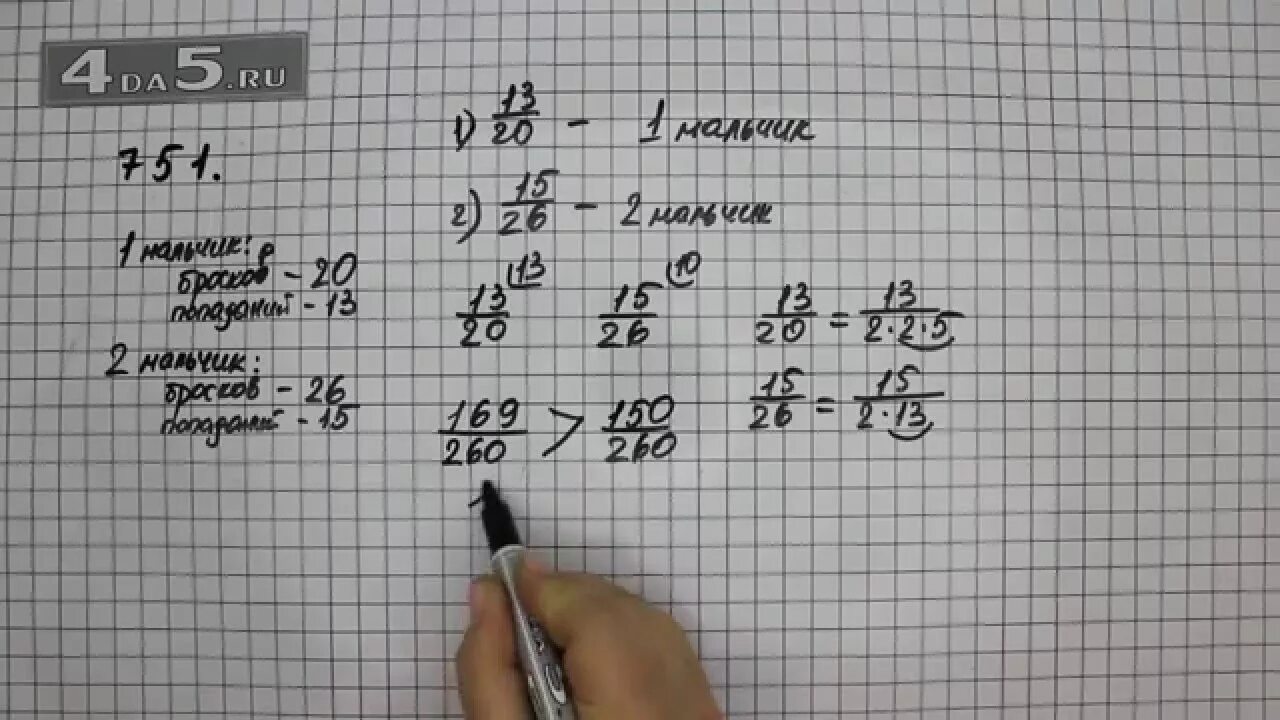 4DA5.RU
751.
1 мальчик:
бросков - 20
попаданий - 13
2 мальчик:
бросков - 26
попаданий - 15
1) 13/20 - 1 мальчик
2) 15/26 - 2 мальчик
13/20 (13 15/26 (10
169/260 > 150/260
13/20 = 13/2·2·5
15/26 = 15/2·13